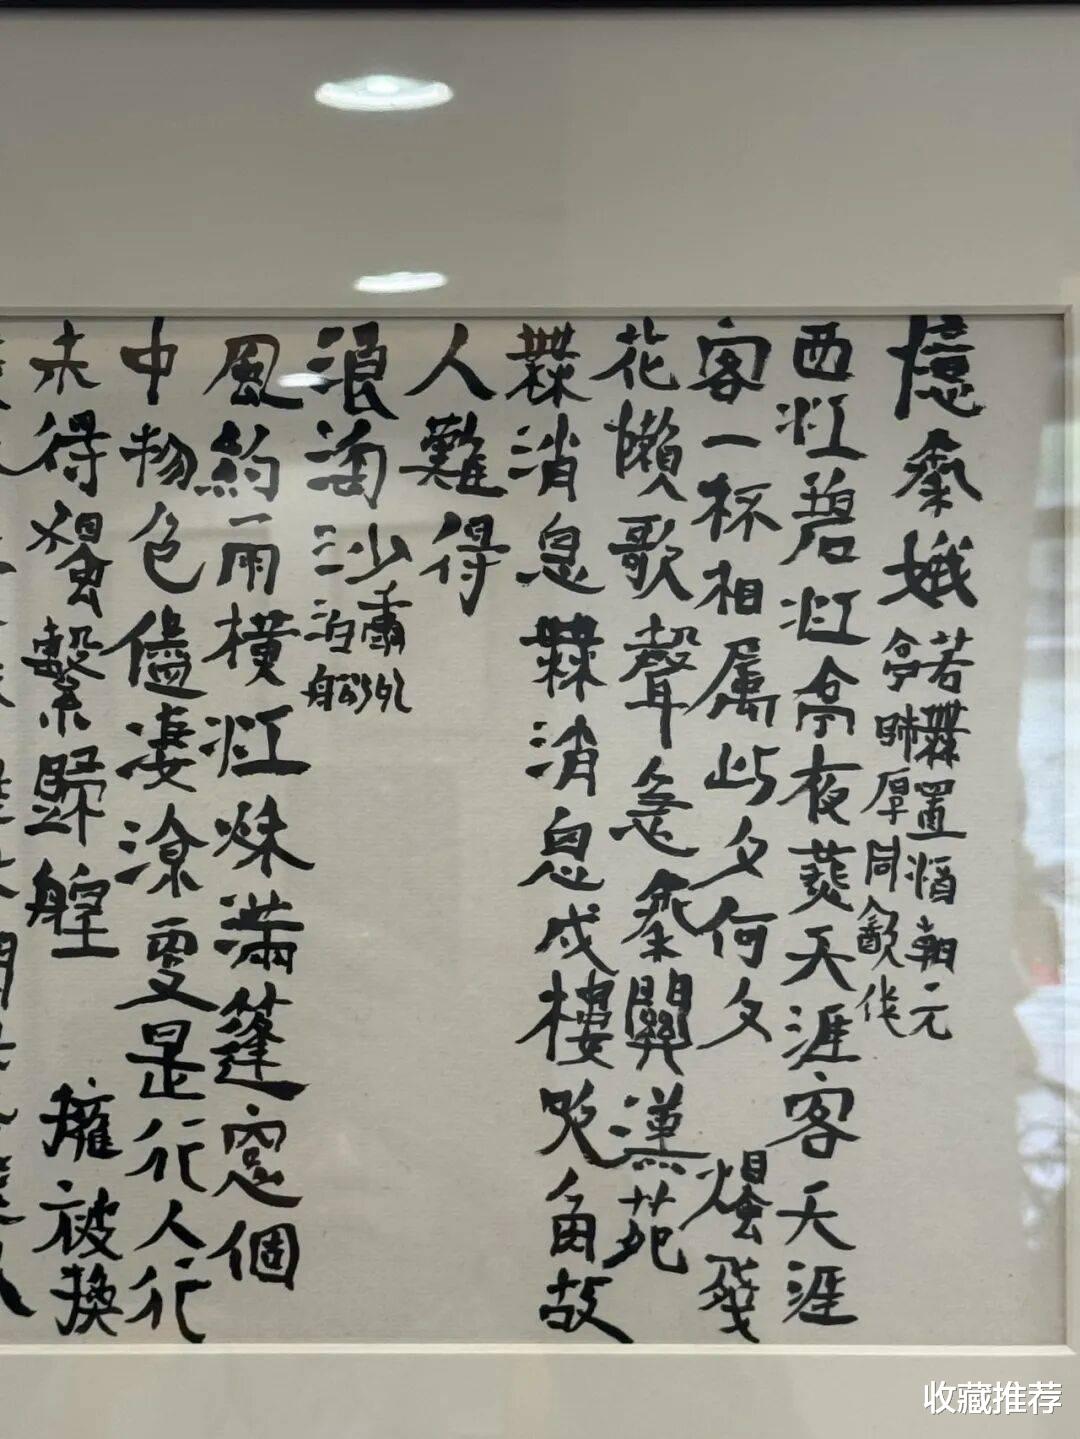 憶秦娥
若無置酒朝元
亭師厚同飲作
西江碧江亭夜燕天涯客天涯
客一杯相屬此夕何夕 燭殘
花懶歌聲急秦關漢苑
無消息無消息戍樓吹角故
人難得
浪淘沙
康州
泊船
風約雨橫江秋滿篷窗個
中物色儘淒涼更是行人行
未得獨繫歸艎 擁被換
收藏推荐